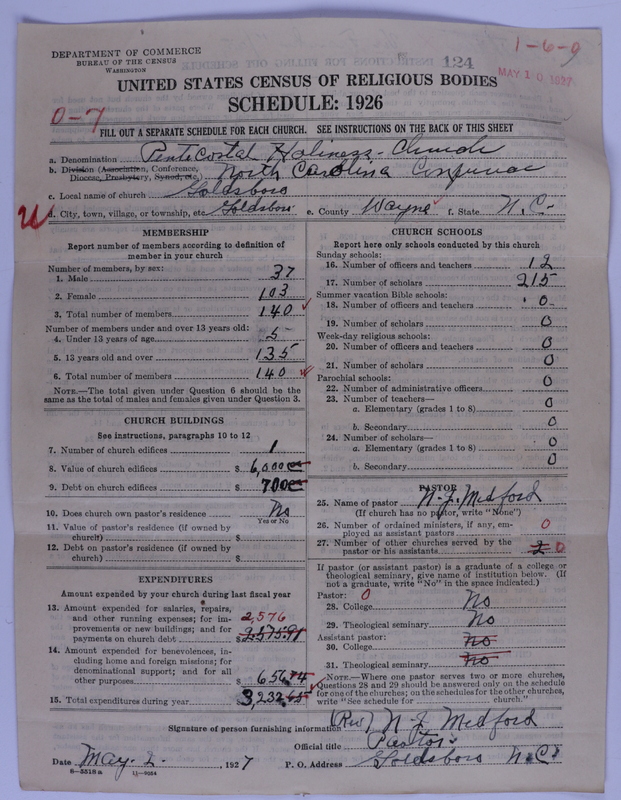 DEPARTMENT OF COMMERCE
BUREAU OF THE CENSUS
WASHINGTON
124
1-6-9
MAY 10 1927
UNITED STATES CENSUS OF RELIGIOUS BODIES
SCHEDULE: 1926
0-7
FILL OUT A SEPARATE SCHEDULE FOR EACH CHURCH. SEE INSTRUCTIONS ON THE BACK OF THIS SHEET
a. Denomination Pentecostal Holiness Church
b. Division (Association, Conference, Diocese, Presbytery, Synod, etc.) North Carolina Conference
c. Local name of church Goldsboro
d. City, town, village, or township, etc. Goldsboro e. County Wayne f. State N.C.
MEMBERSHIP
Report number of members according to definition of
member in your church
Number of members, by sex:
1. Male 37
2. Female 103
3. Total number of members 140
Number of members under and over 13 years old:
4. Under 13 years of age 5
5. 13 years old and over 135
6. Total number of members 140
NOTE.—The total given under Question 6 should be the
same as the total of males and females given under Question 3.
CHURCH BUILDINGS
See instructions, paragraphs 10 to 12
7. Number of church edifices 1
8. Value of church edifices $ 6,000
9. Debt on church edifices $ 700
10. Does church own pastor's residence No
Yes or No
11. Value of pastor's residence (if owned by
church) $
12. Debt on pastor's residence (if owned by
church) $
EXPENDITURES
Amount expended by your church during last fiscal year
13. Amount expended for salaries, repairs,
and other running expenses; for im-
provements or new buildings; and for
payments on church debt $ 2,575.91
2,576
14. Amount expended for benevolences, in-
cluding home and foreign missions; for
denominational support; and for all
other purposes $ 656.74
15. Total expenditures during year $ 3,232.65
CHURCH SCHOOLS
Report here only schools conducted by this church
Sunday schools:
16. Number of officers and teachers 12
17. Number of scholars 215
Summer vacation Bible schools:
18. Number of officers and teachers 0
19. Number of scholars 0
Week-day religious schools:
20. Number of officers and teachers 0
21. Number of scholars 0
Parochial schools:
22. Number of administrative officers 0
23. Number of teachers—
a. Elementary (grades 1 to 8) 0
b. Secondary 0
24. Number of scholars—
a. Elementary (grades 1 to 8) 0
b. Secondary 0
PASTOR
25. Name of pastor N. J. Medford
(If church has no pastor, write "None")
26. Number of ordained ministers, if any, em-
ployed as assistant pastors 0
27. Number of other churches served by the
pastor or his assistants 2 0
If pastor (or assistant pastor) is a graduate of a college or
theological seminary, give name of institution below. (If
not a graduate, write "No" in the space indicated.)
Pastor: 0
28. College No
29. Theological seminary No
Assistant pastor:
30. College No
31. Theological seminary No
NOTE.—Where one pastor serves two or more churches,
Questions 28 and 29 should be answered only on the schedule
for one of the churches; on the schedules for the other churches,
write "See schedule for church."
Signature of person furnishing information (Rev) N. J. Medford
Official title Pastor
Date May 2, 1927 P. O. Address Goldsboro N.C.
8—5518 a 11—9954